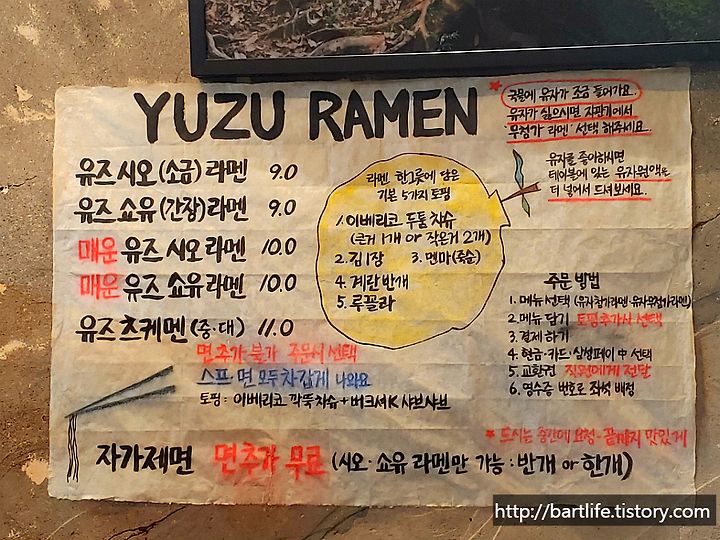 YUZU RAMEN
* 국물에 유자가 조금 들어가요.
유자가 싫으시면 자판기에서
"무첨가 라멘" 선택 해주세요.
유자를 좋아하시면
테이블에 있는 유자원액을
더 넣어서 드셔보세요.
유즈 시오 (소금) 라멘 9.0
유즈 쇼유 (간장) 라멘 9.0
매운 유즈 시오 라멘 10.0
매운 유즈 쇼유 라멘 10.0
유즈 츠케멘 (중·대) 11.0
면추가 불가 주문시 선택
스프·면 모두 차갑게 나와요
토핑: 이베리코 깍뚝차슈+버크셔K 샤브샤브
라멘 한그릇에 담은
기본 5가지 토핑
1. 이베리코 두툼 차슈
(큰거 1개 or 작은거 2개)
2. 김 1장 3. 멘마(죽순)
4. 계란 반개
5. 루꼴라
주문 방법
1. 메뉴 선택 (유자첨가라멘·유자무첨가라멘)
2. 메뉴 담기 토핑추가시 선택
3. 결제 하기
4. 현금·카드·삼성페이 中 선택
5. 교환권 직원에게 전달
6. 영수증 번호로 좌석 배정
* 드시는 중간에 요청-끝까지 맛있게
자가제면 면추가 무료 (시오·쇼유 라멘만 가능: 반개 or 한개)
http://bartlife.tistory.com